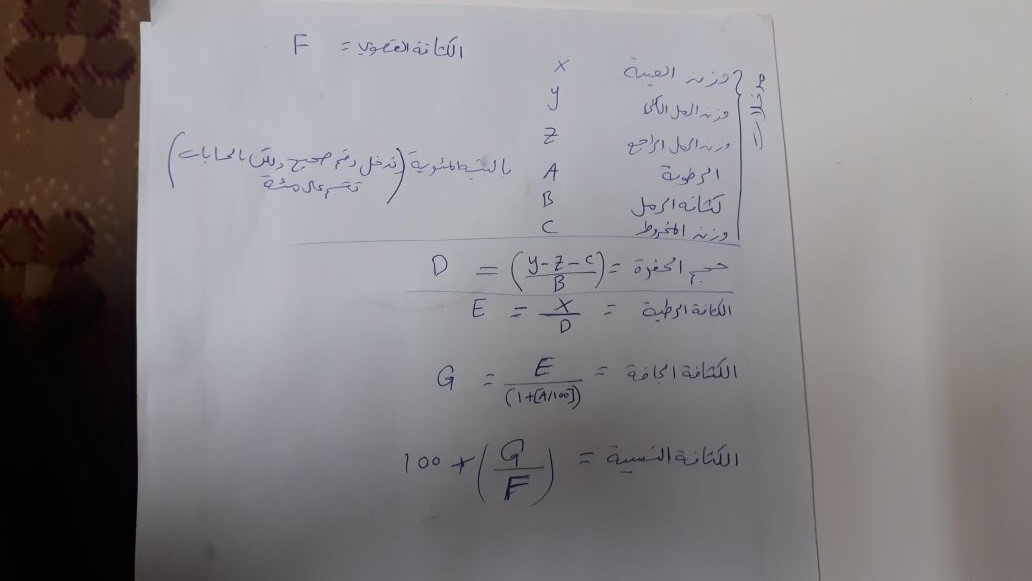 الكثافة القصوى = F
مدخلات
وزن العينة X
وزن الرمل الكلي y
وزن الرمل الراجع Z
الرطوبة A بالنسبة المئوية (ندخل رقم صحيح ولكن بالحسابات
تقسم على مئة)
كثافة الرمل B
وزن المخروط C
حجم الحفرة = (y-Z-C/B) = D
الكثافة الرطبة = X/D = E
الكثافة الجافة = E/(1+[A/100]) = G
الكثافة النسبية = (G/F) * 100